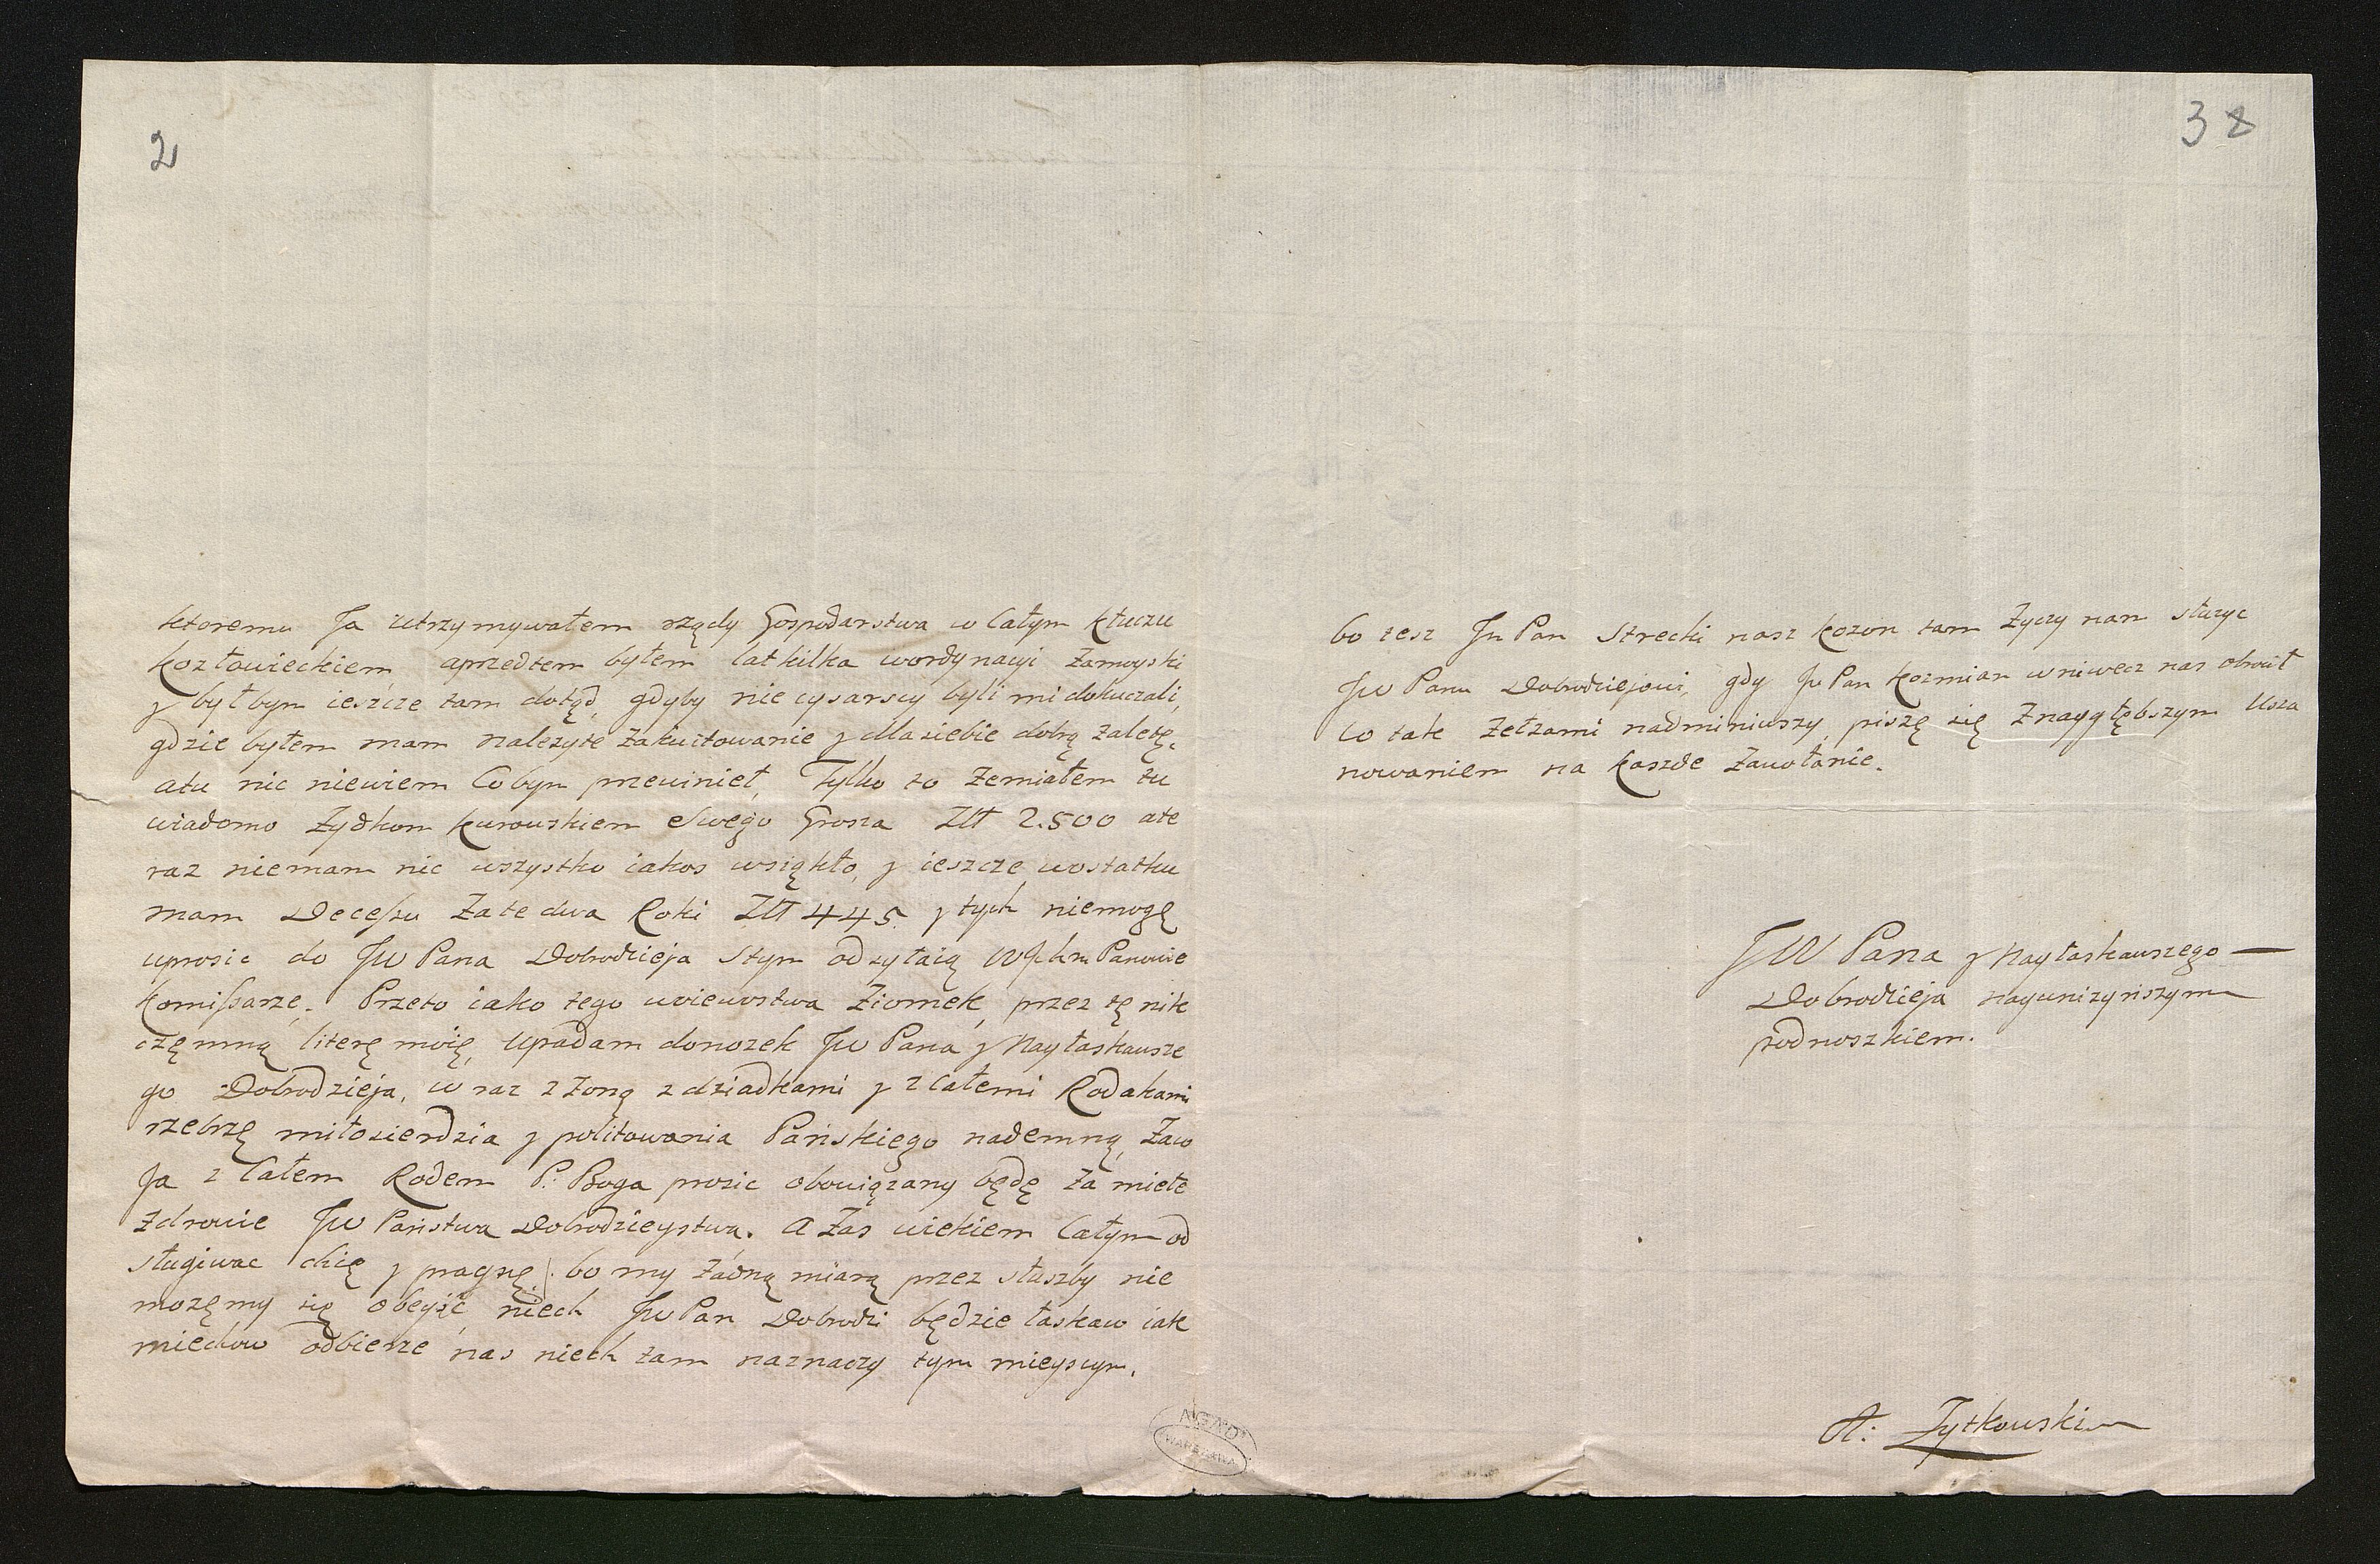 2
ktoremu Ja utrzymywałem rządy Gospodarstwa w Całym Kluczu
Kozłowieckiem, aprzedtem byłem lat kilka wordynacyi Zamoyski
y byłbym ieszcze tam dotąd, gdyby nie cysarscy byli mi dokuczali,
gdzie byłem mam nalezyte zakwitowanie y dla siebie dobrą zaletę.
atu nic niewiem Cobym przewinieł, Tylko to zemiałem tu
wiadomo Zydkom Kurowskiem Swego Grosza Złł 2.500 ate
raz niemam nic wszystko iakos wsiąkło, y ieszcze wostatku
mam Decessu zate dwa Roki Złł 445. y tych niemogę
uprosic do JW Pana Dobrodzieja Stym odsyłaią Panowie
Komissarze. Przeto iako tego woiewostwa Ziomek, przez tę nik
częmną literę moię, upadam donozek JW Pana y Nayłaskawsze
go Dobrodzieja, w raz z Zoną z dziadkami y z Całemi Rodakami
rzebrzę miłosierdzia y politowania Pańskiego nademną, Zaco
Ja z Całem Rodem P. Boga prosic obowiązany będę za miełe
zdrowie JW Państwa Dobrodzieystwa. A Zas wiekiem Całym od
sługiwac chcę y pragnę. bo my Zadną miarą przez słuszby nie
mozęmy się obeyść, niech JW Pan Dobrodzi będzie łaskaw iak
miechow odbierze nas niech tam naznaczy tym mieyscym.
AGAD
WARSZAWA
3 2
bo tesz Jn Pan Strecki nasz kozon tam Zyczy nam słuzyc
JW Panu Dobrodziejowi, gdy JW Pan Kozmian wniwecz nas obrocił
Co tak Zełzami nadminiwszy, piszę się Znaygłębszym Usza
nowaniem na Kaszde Zawołanie.
JW Pana y Nayłaskawszego
Dobrodzieja nayunizyńszym
podnoszkiem.
A: Zytkowski